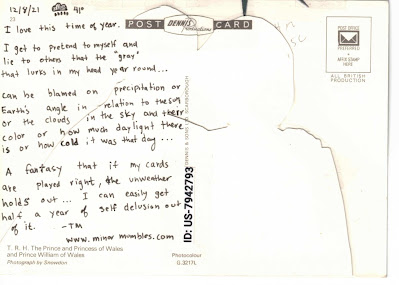 12/8/21 41°
23
POST DENNIS productions CARD
I love this time of year.
I get to pretend to myself and
lie to others that the "gray"
that lurks in my head year round...
can be blamed on precipitation or
Earth's angle in relation to the sun
or the clouds in the sky and their
color or how much daylight there
is or how cold it was that day...
A fantasy that if my cards
are played right, the unweather
holds out... I can easily get
half a year of self delusion out
of it. -TM
www.minormumbles.com
T. R. H. The Prince and Princess of Wales
and Prince William of Wales
Photograph by Snowdon
Photocolour
G.3217L
DENNIS & SONS LTD. SCARBOROUGH
ID: US-7942793
POST OFFICE
PREFERRED
AFFIX STAMP
HERE
ALL BRITISH
PRODUCTION